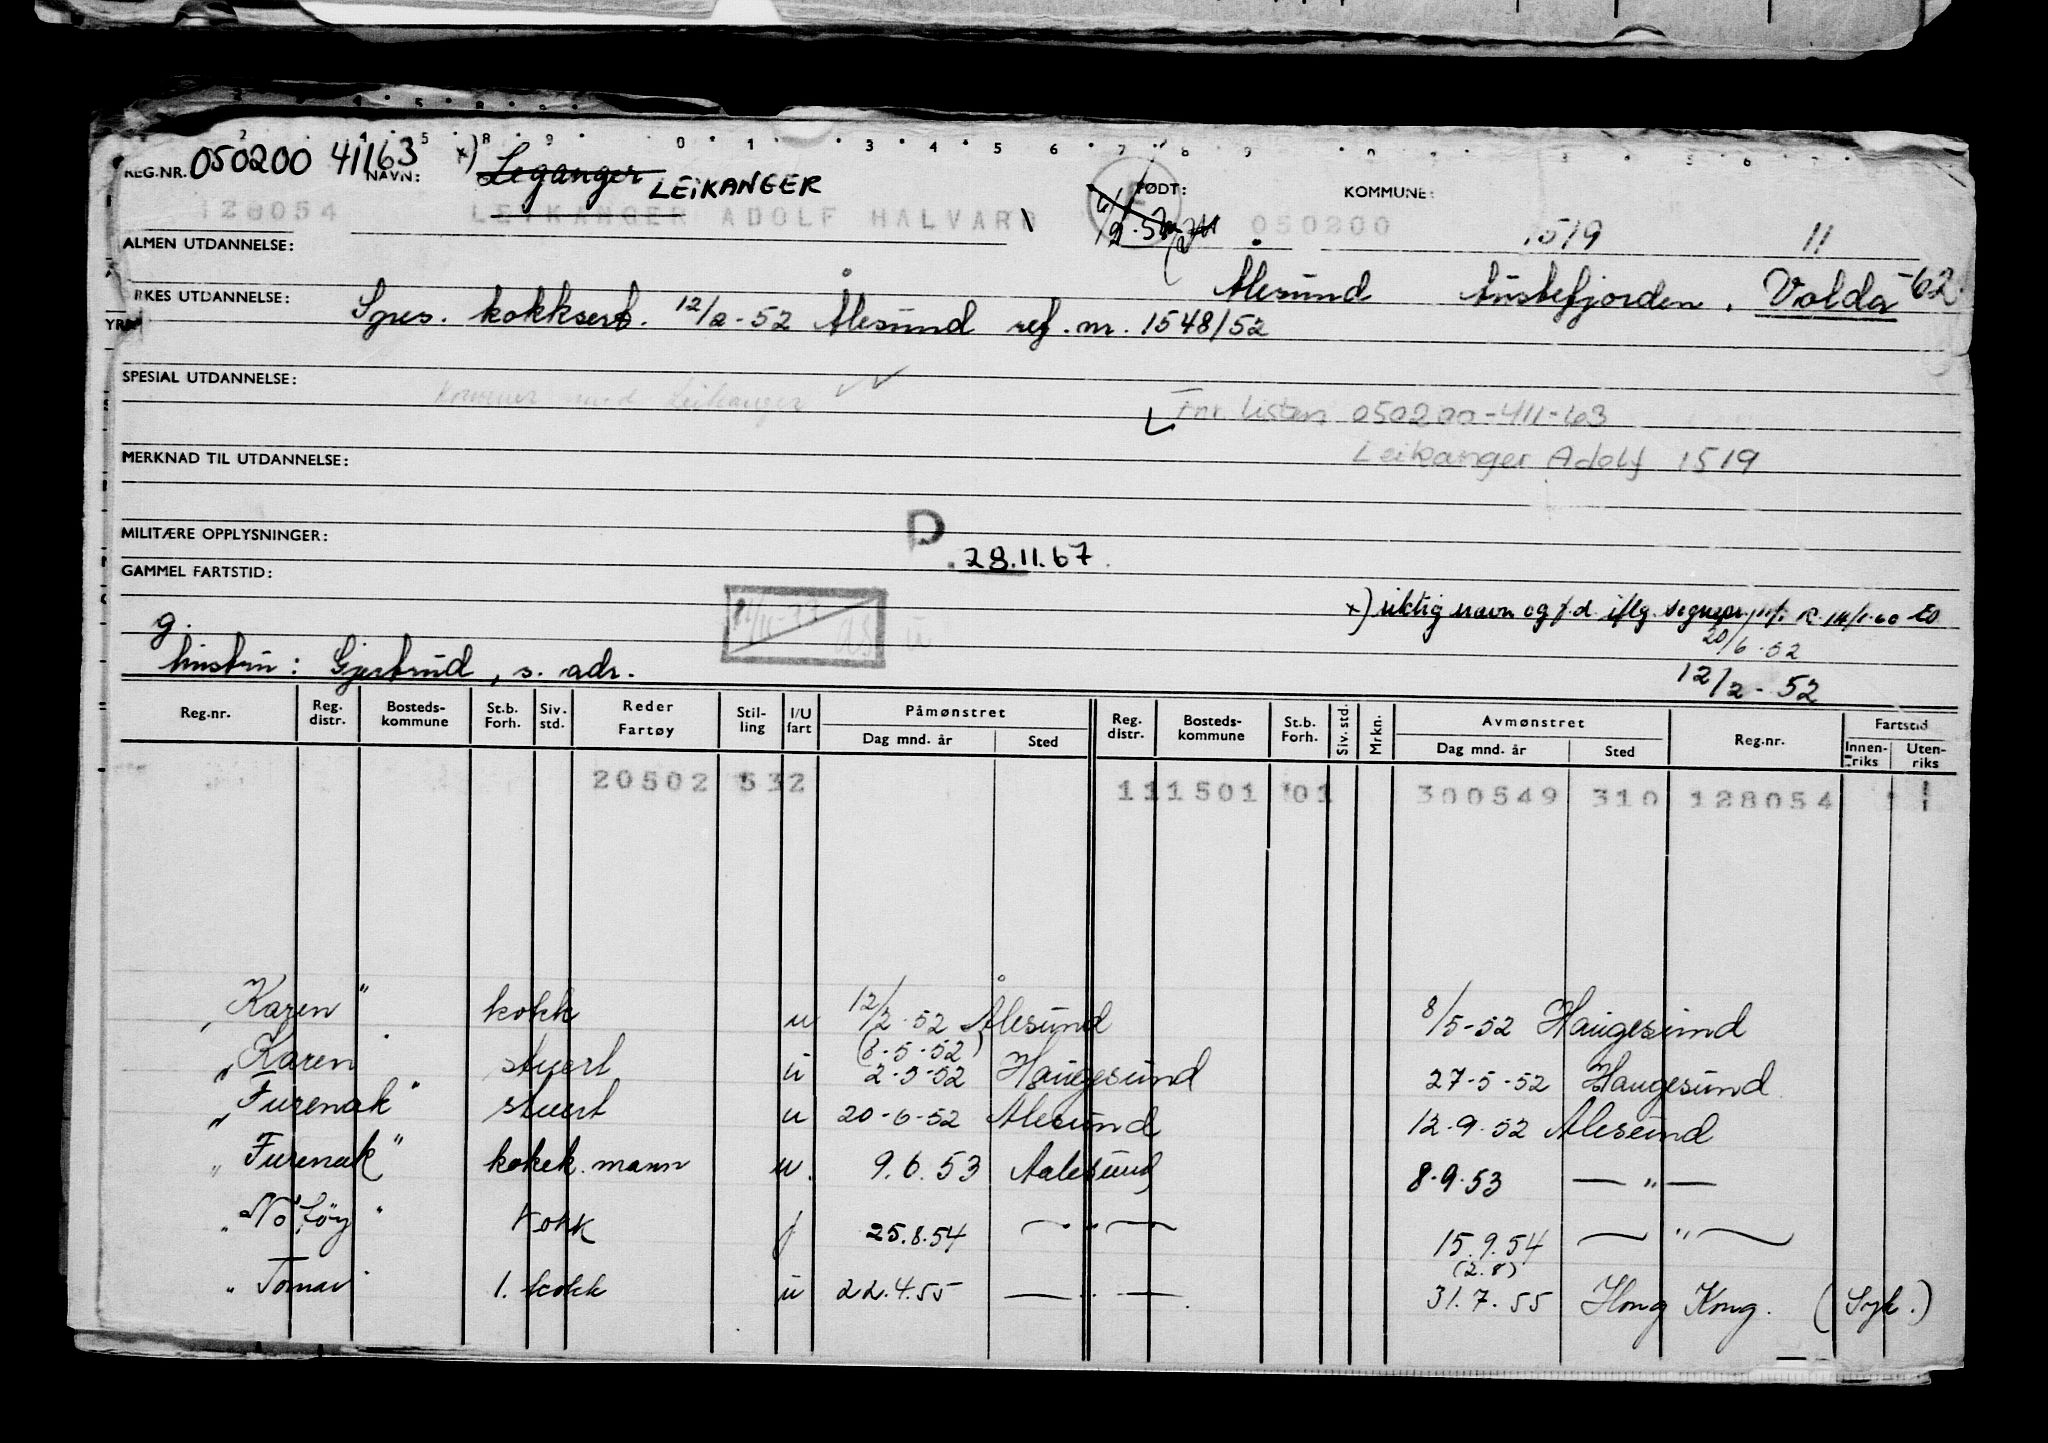 REG.NR. 050200 41163 NAVN: x) Leganger LEIKANGER FØDT: KOMMUNE:
128054 LEIKANGER ADOLF HALVARD 050200 1519 11
ALMEN UTDANNELSE:
Ålesund Austefjorden, Volda -62
RKES UTDANNELSE: Spes. kokksert. 12/2-52 Ålesund ref. nr. 1548/52
YR
SPESIAL UTDANNELSE: Kommer med Leikanger
Fnr. listen 050200-411-63
MERKNAD TIL UTDANNELSE: Leikanger Adolf 1519
MILITÆRE OPPLYSNINGER: D
28.11.67
GAMMEL FARTSTID:
x) riktig navn og f.d. iflg.
g. 20/6-52
hustru: Gjertrud, s. adr. 12/2-52
Reg.nr. Reg. distr. Bosteds-kommune St.b. Forh. Siv. std. Reder Fartøy Stil-ling I/U fart Påmønstret Dag mnd. år Sted Reg. distr. Bosteds-kommune St.b. Forh. Siv. std. Mrkn. Avmønstret Dag mnd. år Sted Reg.nr. Fartstid Innen-riks Uten-riks
20502 532 111501 01 300549 310 128054
"Karen" kokk u 12/2-52 Ålesund 8/5-52 Haugesund
(8-5-52)
"Karen" stuert u 2-5-52 Haugesund 27-5-52 Haugesund
"Furenak" stuert u 20-6-52 Alesund 12.9.52 Alesund
"Furenak" kokek. mann u. 9.6.53 Aalesund 8.9.53 — " —
Kokk f 25.8.54 — " — 15.9.54 — " —
(2.8)
1. kokk u 22.4.55 — " — 31.7.55 Hong Kong. (Syk.)